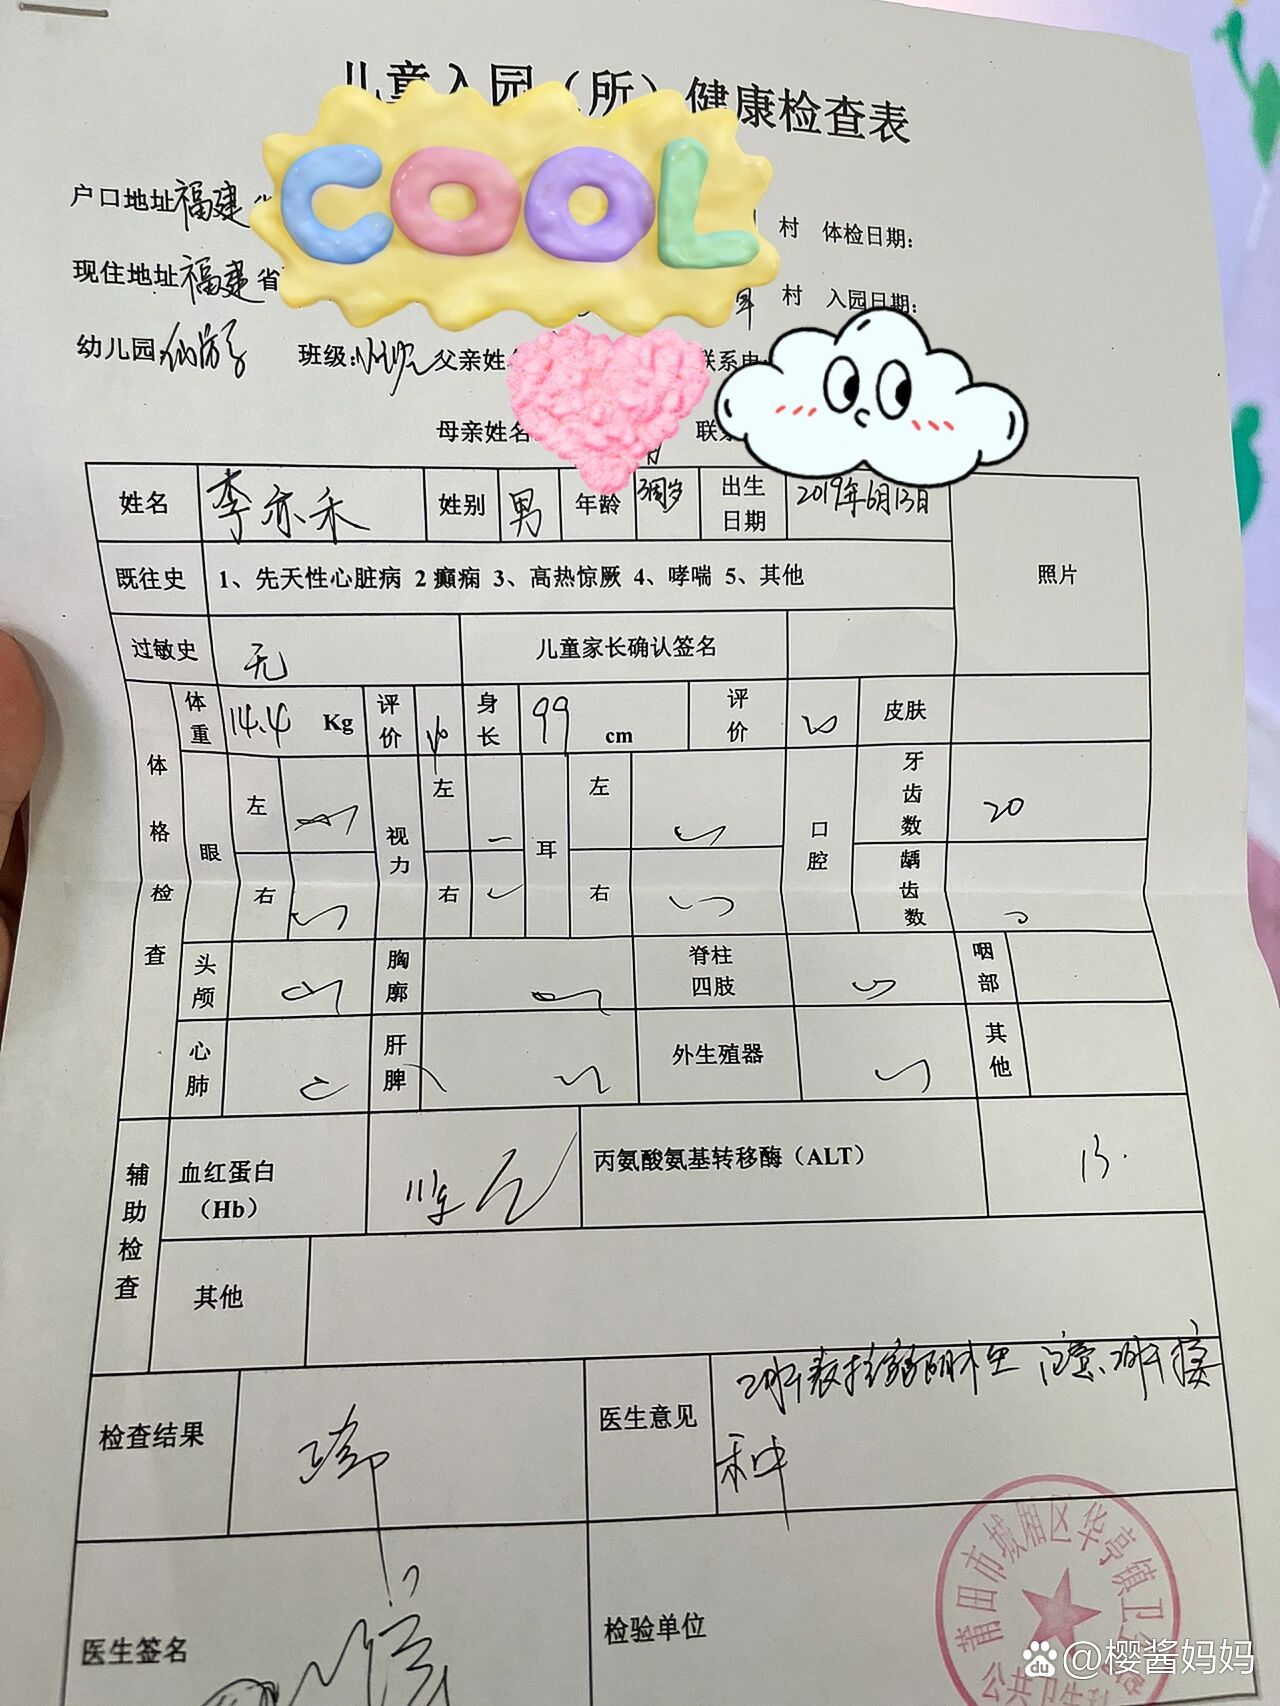 儿童入园（所）健康检查表
COOL
户口地址福建省 村 体检日期：
现住地址福建省 村 入园日期：
幼儿园: 班级:小班 父亲姓 联系电:
母亲姓名 联系
姓名 李亦禾 姓别 男 年龄 3周岁 出生日期 2019年6月13日 照片
既往史 1、先天性心脏病 2癫痫 3、高热惊厥 4、哮喘 5、其他
过敏史 无 儿童家长确认签名
体格检查 体重 14.4 Kg 评价 身长 99 cm 评价 皮肤
眼 左 视力 左 耳 左 口腔 牙齿数 20
右 右 右 龋齿数
头颅 胸廓 脊柱四肢 咽部
心肺 肝脾 外生殖器 其他
辅助检查 血红蛋白（Hb） 丙氨酸氨基转移酶（ALT） 13.
其他
检查结果 医生意见
种
医生签名 检验单位
莆田市城厢区华亭镇卫
公共卫生科
@樱酱妈妈